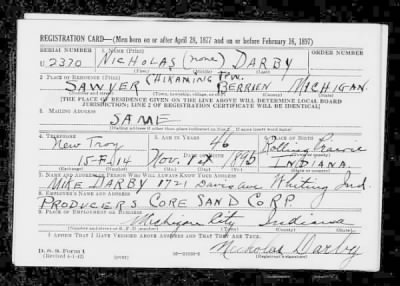 REGISTRATION CARD—(Men born on or after April 28, 1877 and on or before February 16, 1897)
SERIAL NUMBER 1. NAME (Print) ORDER NUMBER
U 2370 NICHOLAS (none) DARBY
(First) (Middle) (Last)
2. PLACE OF RESIDENCE (Print) CHIKAMING TWP.
SAWYER BERRIEN MICHIGAN
(Number and street) (Town, township, village, or city) (County) (State)
[THE PLACE OF RESIDENCE GIVEN ON THE LINE ABOVE WILL DETERMINE LOCAL BOARD
JURISDICTION; LINE 2 OF REGISTRATION CERTIFICATE WILL BE IDENTICAL]
3. MAILING ADDRESS
SAME
[Mailing address if other than place indicated on line 2. If same insert word same]
4. TELEPHONE 5. AGE IN YEARS 6. PLACE OF BIRTH
New Troy 46 Rolling Prairie
15-F-14 Nov. 1st 1895 INDIANA
7. NAME AND ADDRESS OF PERSON WHO WILL ALWAYS KNOW YOUR ADDRESS
MIKE DARBY 1721 Davis ave Whiting Ind.
8. EMPLOYER'S NAME AND ADDRESS
PRODUCERS CORE SAND CORP.
9. PLACE OF EMPLOYMENT OR BUSINESS
Michigan City Indiana
I AFFIRM THAT I HAVE VERIFIED ABOVE ANSWERS AND THAT THEY ARE TRUE.
D. S. S. Form 1
(Revised 4-1-42) (over) Nicholas Darby
(Registrant's signature)